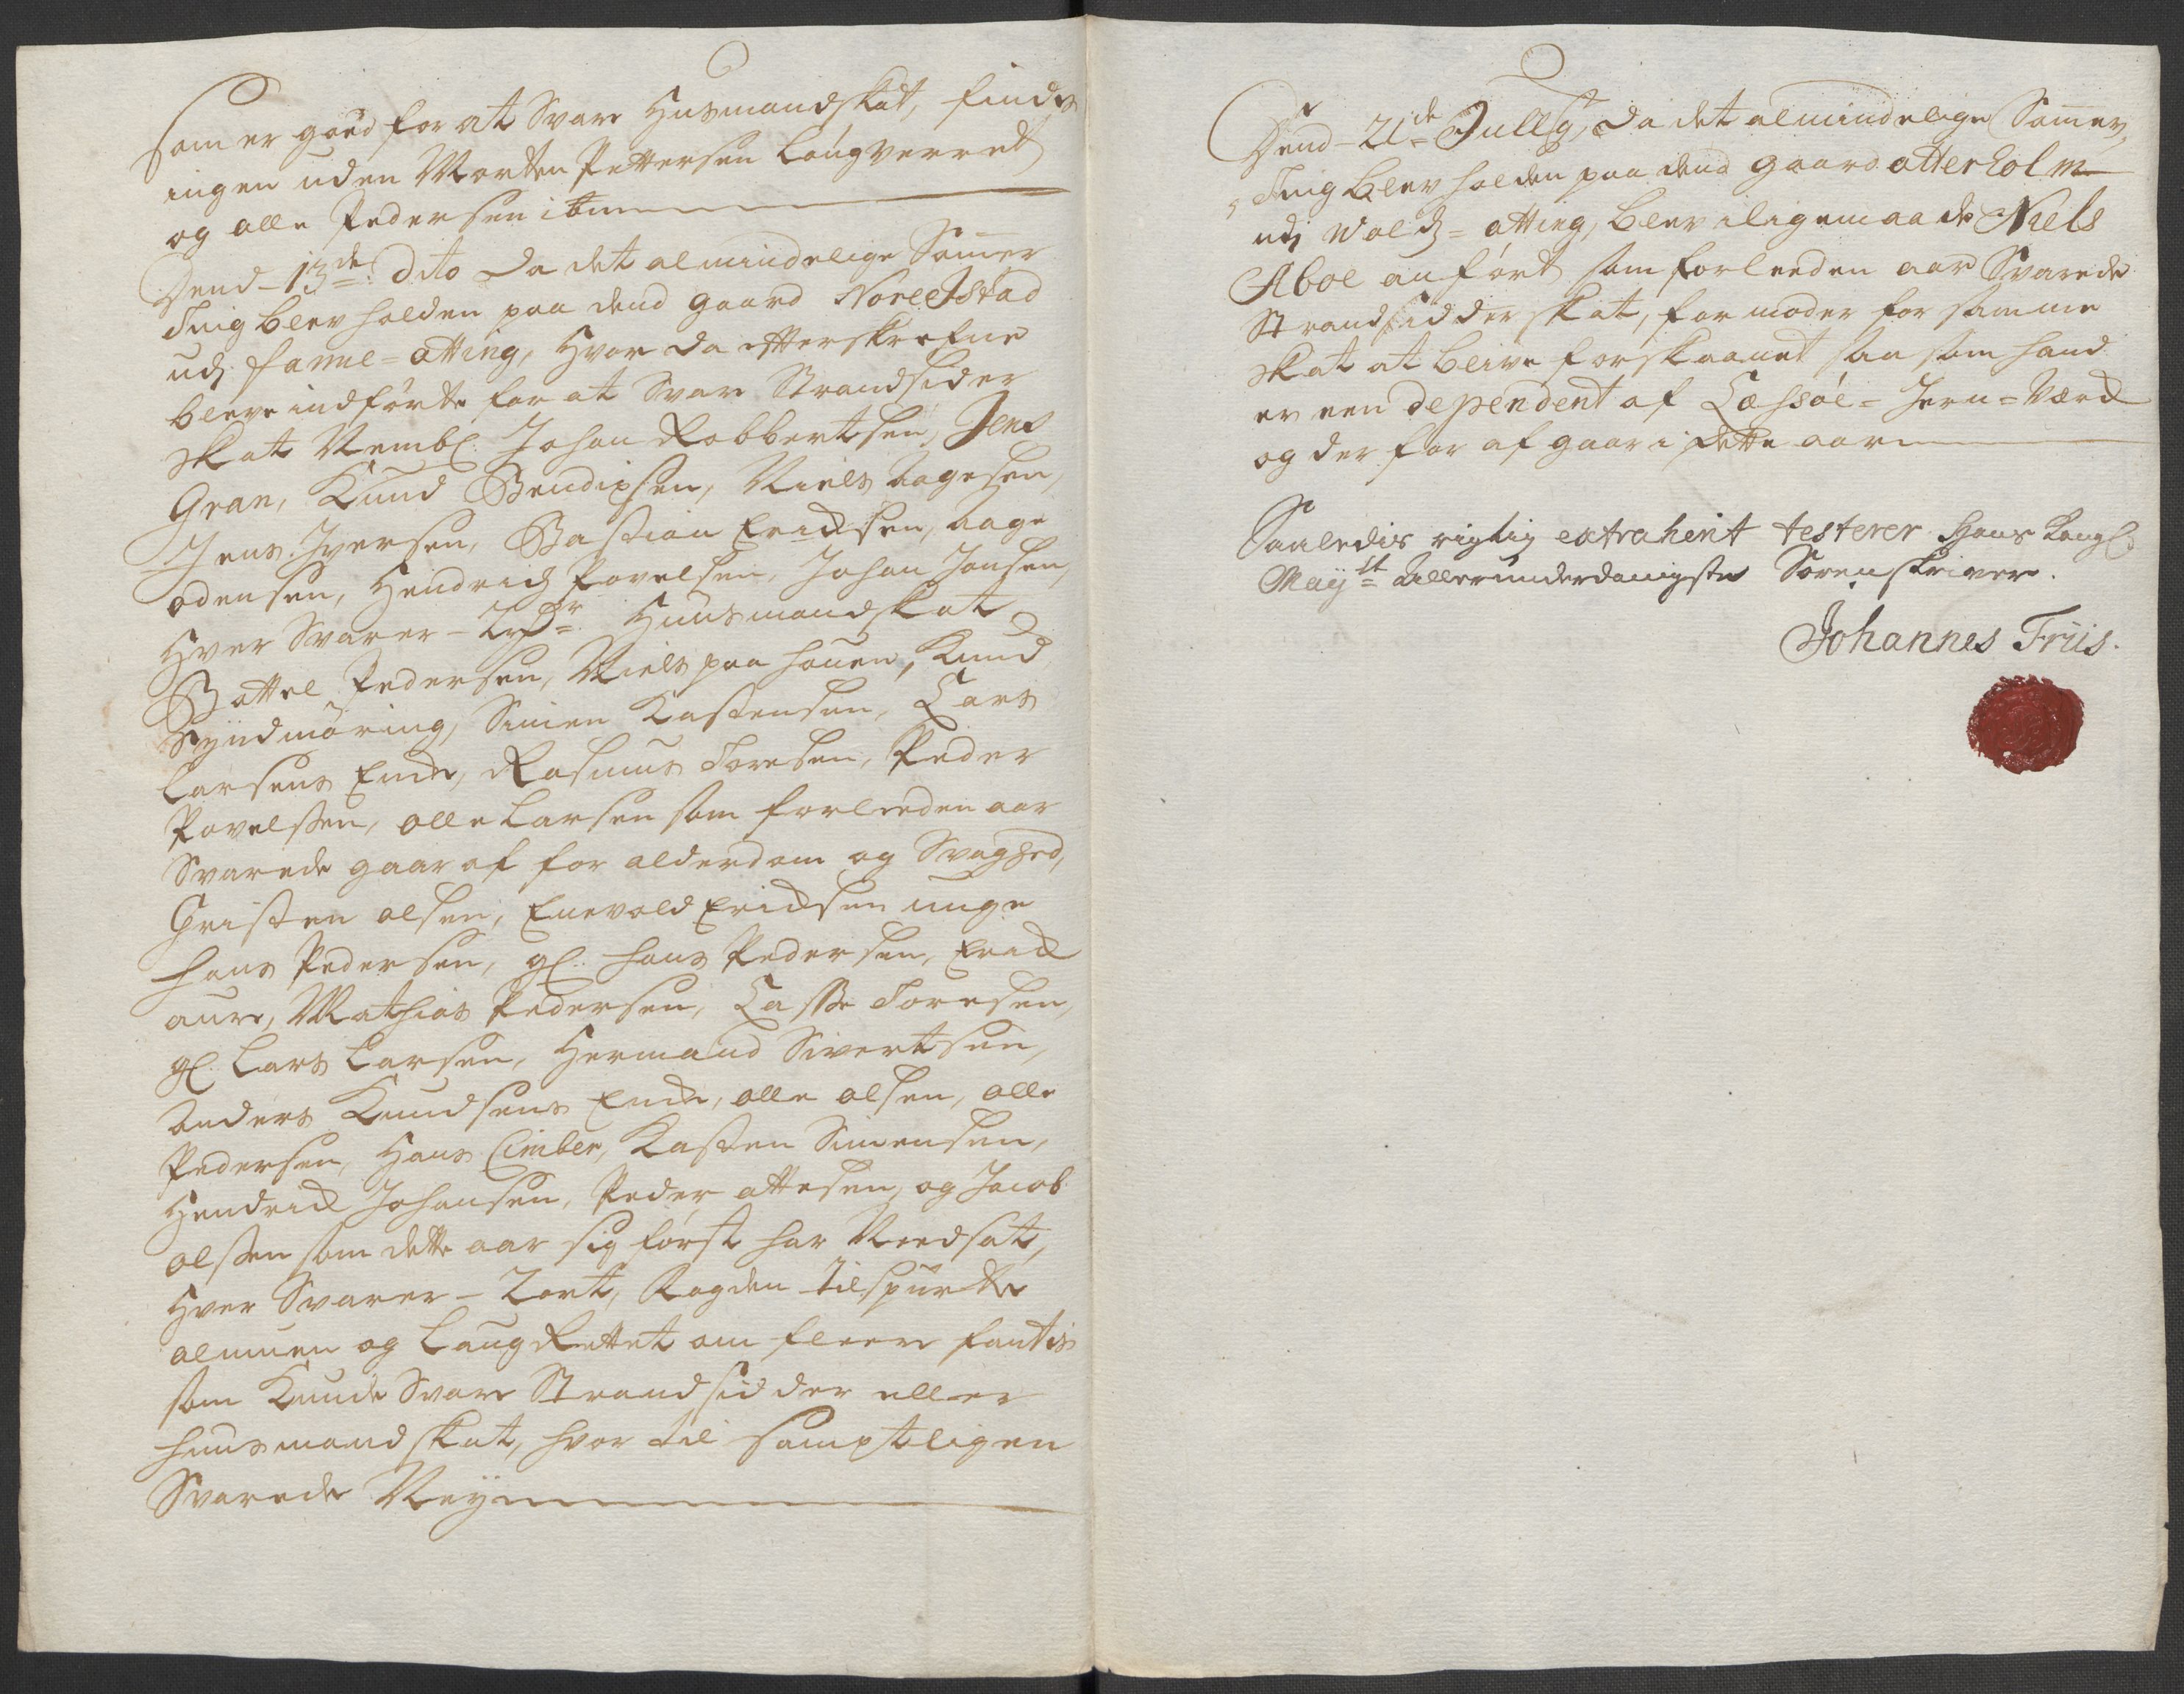 som er goed for at Svare Husmandskat, findes
ingen uden Morten Pettersen Laugverret
og alle Pedersen ibm
Dend - 13de dito da det almindelige Somer
Ting blev holden paa dend gaard Nore Istad
udj fanne = otting, hvor da etterskrefne
bleve indförte for at Svare Strandsider
skat Nembl. Johan Robbertsen, Jens
Gran, Knud Bendixsen, Niels Aagesen,
Jens Iversen, Bastian Ericksen, Aage
odensen, Hendrich Povelsen, Johan Jansen,
hver Svarer - Huusmandskat
Battel Pedersen, Niels paa houen, Knud
Syndmöring, Simen Kastensen, Lars
Larsens Encke, Rasmus Toresen, Peder
Povelssen, olle Larsen som forleeden aar
Svarede gaar af for alderdom og Svaghed,
Christen olsen, Enevold Ericksen unge
hans Pedersen, gl: hans Pedersen, Erick
aure, Mathias Pedersen, Lasse Toresen,
gl. Lars Larsen, Hermand Sivertsen,
Anders Knudsens Encke, olle olsen, olle
Pedersen, Hans Cimber, Kasten Simensen,
Hendrick Johansen, Peder attesen, og Jacob
olssen som dette aar sig först har Needsatt,
hver Svarer - 2 ort, Fogden tilspurde
almuen og LaugRettet om fleere fantis
som Kunde Svare Strandsidder eller
huusmand skat, hvor til samptligen
Svarede Ney
Dend - 21de Jully, da det almindelige Somer,
Ting blev holden paa dend gaard otterholm
udj Vold = otting, blev iligemaade Niels
Aboe anfört som forleeden aar Svarede
Strandsidder skat, formoder for samme
skat at blive forskaanet saa som hand
er een dependent af Læssöe = Jern = Værck
og der for af gaar i dette aar
Saaledis rigtig extraherit testerer Hans Kongl:
Mayst Allerunderdanigste Sorenskriver.
Johannes Friis.